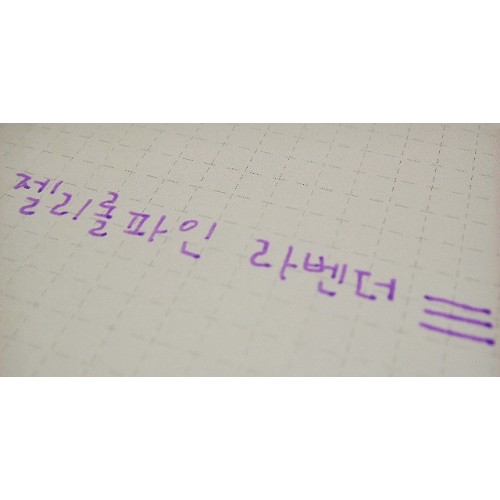 젤리롤파인 라벤더